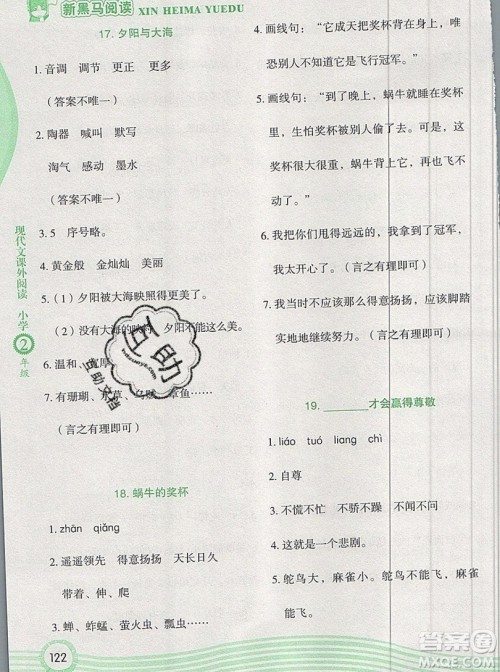 新黑马阅读 XIN HEIMA YUEDU
现代文课外阅读 小学2年级
17. 夕阳与大海
1. 音调 调节 更正 更多
（答案不唯一）
2. 陶器 喊叫 默写
淘气 感动 墨水
（答案不唯一）
3. 5 序号略。
4. 黄金般 金灿灿 美丽
5.（1）夕阳被大海映照得更美了。
（2）没有大海的映衬 夕阳不能这么美。
6. 温和、宽厚。
7. 有珊瑚、海龟、乌贼、章鱼……
（言之有理即可）
18. 蜗牛的奖杯
1. zhān qiǎng
2. 遥遥领先 得意扬扬 天长日久
背着、伸、爬
3. 蝉、蚱蜢、萤火虫、瓢虫……
122
4. 画线句：“它成天把奖杯背在身上，唯
恐别人不知道它是飞行冠军。”
5. 画线句：“到了晚上，蜗牛就睡在奖杯
里，生怕奖杯被别人偷了去……奖
杯很大很重，蜗牛背上它，再也飞不
动了。”
6. 我把你们甩得远远的，我拿到了冠军，
我太开心了。（言之有理即可）
7. 取得了成就，不能得意扬扬，应该踏踏
实实地继续努力。（言之有理即可）
19. ______才会赢得尊敬
1. liáo tuó liang chì
2. 自尊
3. 不慌不忙 不骄不躁 不闻不问
4. 这就是一个悲剧。
5. 鸵鸟大，麻雀小。鸵鸟不能飞，麻雀
能飞。
互助
互助文档
答案圈
MXQE.COM